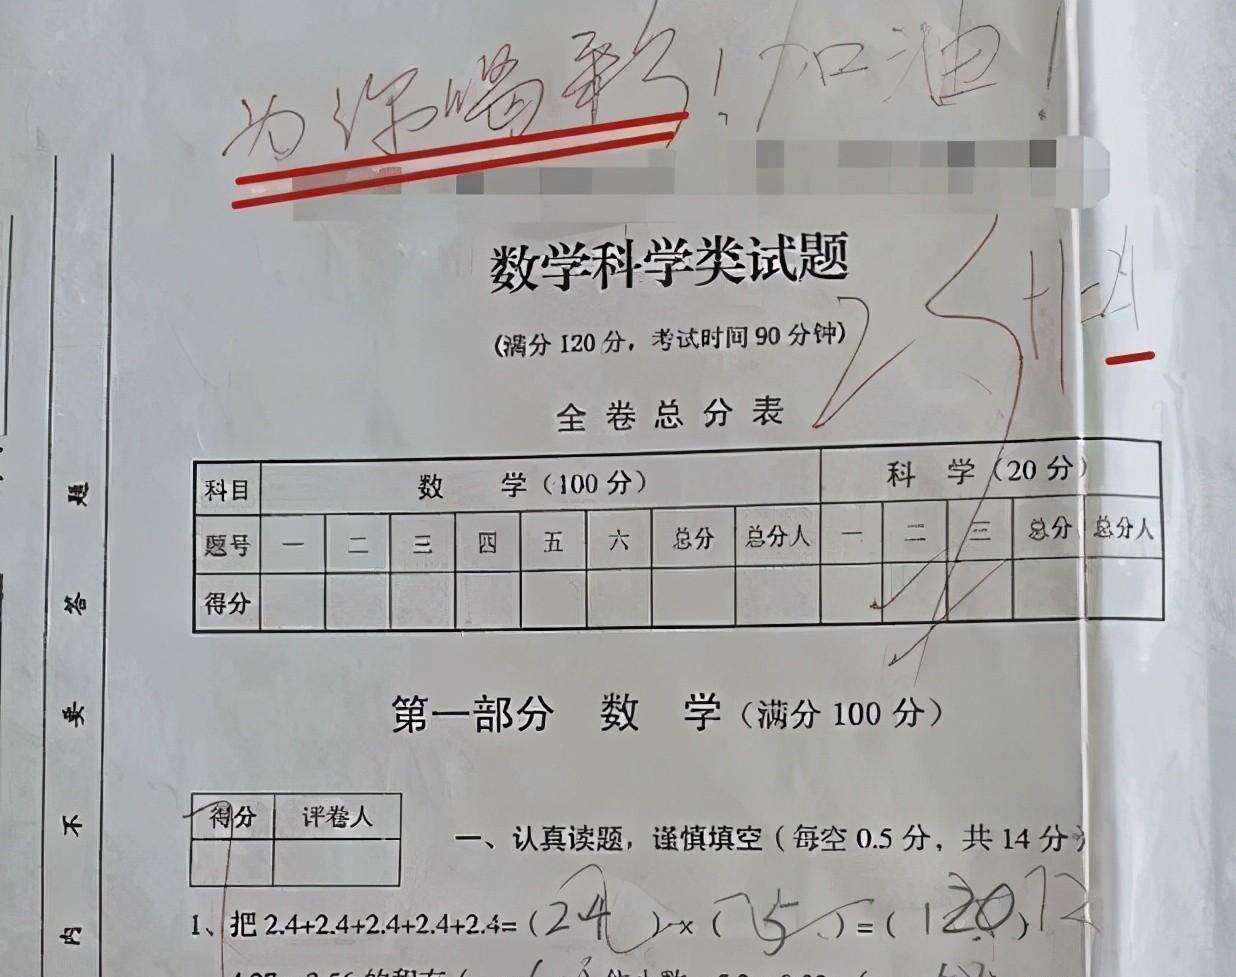 为你喝彩！加油！
数学科学类试题
(满分 120 分，考试时间 90 分钟)
25+1=
全卷总分表
科目 数 学（100 分） 科 学（20 分）
题号 一 二 三 四 五 六 总分 总分人 一 二 三 总分 总分人
得分
第一部分 数 学（满分 100 分）
得分 评卷人
一、认真读题，谨慎填空（每空 0.5 分，共 14 分）
1、把 2.4+2.4+2.4+2.4+2.4=（24）×（5）=（120）12
题
答
要
不
内